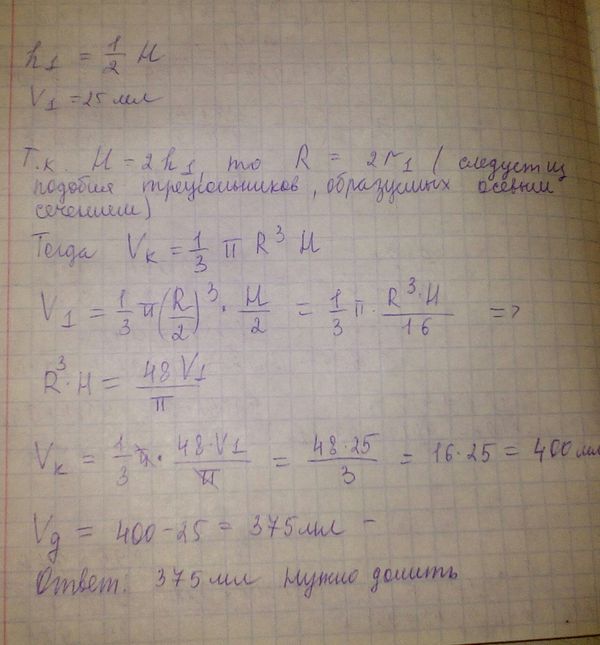 h₁ = 1/2 H
V₁ = 25 мл
Т.к. H = 2h₁ то R = 2r₁ (следует из
подобия треугольников, образуемых осевым
сечением)
Тогда Vк = 1/3 π R³ H
V₁ = 1/3 π (R/2)³ · H/2 = 1/3 π · R³·H/16 =>
R³·H = 48V₁/π
Vк = 1/3 π · 48·V₁/π = 48·25/3 = 16·25 = 400 мл
Vд = 400 - 25 = 375 мл -
Ответ. 375 мл нужно долить